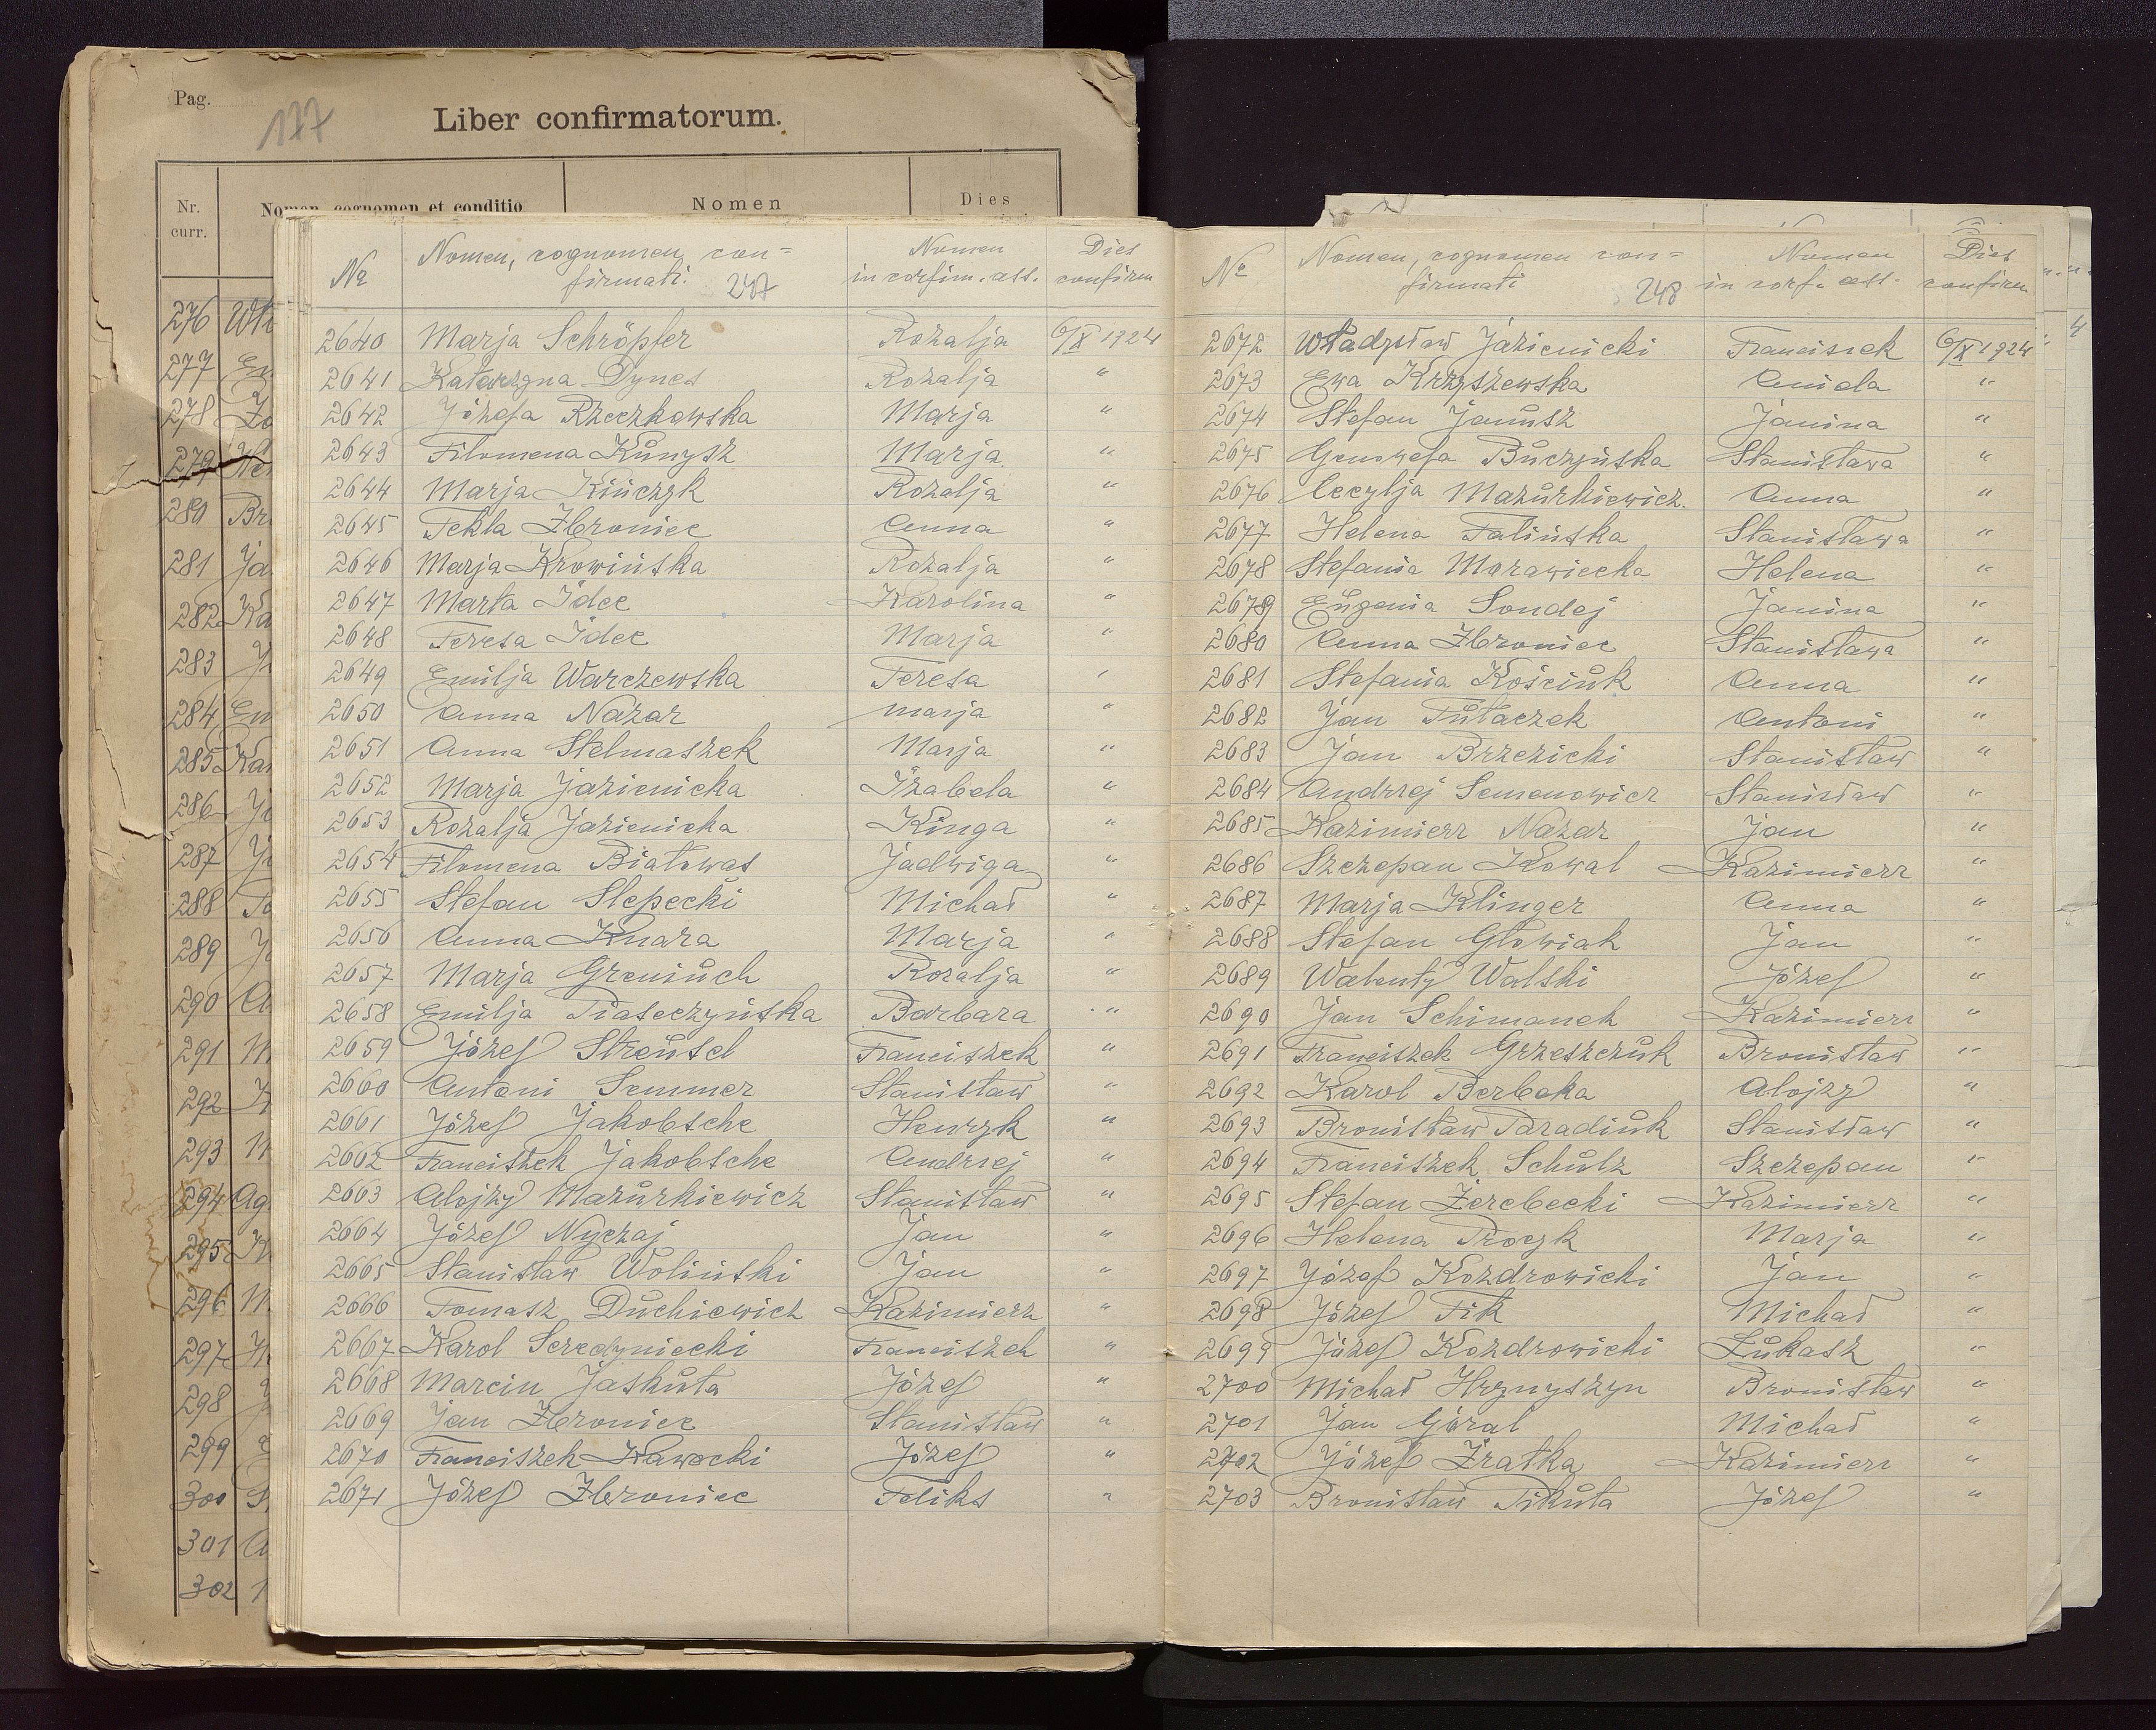 Pag.
177
Liber confirmatorum.
Nr. curr.
Nomen, cognomen et conditio
Nomen
Dies
276
277
278
279
280
281
282
283
284
285
286
287
288
289
290
291
292
293
294 Ag
295
296
297
298
299
300
301
302
№ Nomen, cognomen con= Nomen Dies
firmati. 247 in confirm. ass. confirm
2640 Marja Schröpfer Rozalja 6/IX 1924
2641 Katarzyna Dynes Rozalja "
2642 Józefa Rzeczkowska Marja "
2643 Filomena Kunysz Marja "
2644 Marja Kińczyk Rozalja "
2645 Tekla Zbroniec Anna "
2646 Marja Krowińska Rozalja "
2647 Marta Idec Karolina "
2648 Teresa Idec Marja "
2649 Emilja Warczewska Teresa "
2650 Anna Nazar Marja "
2651 Anna Stelmaszek Marja "
2652 Marja Jazienicka Izabela "
2653 Rozalja Jazienicka Kinga "
2654 Filomena Białowąs Jadwiga "
2655 Stefan Slepecki Michał "
2656 Anna Knara Marja "
2657 Marja Greniuch Rozalja "
2658 Emilja Piaseczyńska Barbara "
2659 Józef Streusel Franciszek "
2660 Antoni Semmer Stanisław "
2661 Józef Jakobsche Henryk "
2662 Franciszek Jakobsche Andrzej "
2663 Alojzy Mazurkiewicz Stanisław "
2664 Józef Nyczaj Jan "
2665 Stanisław Woliński Jan "
2666 Tomasz Duchiewicz Kazimierz "
2667 Karol Seredyniecki Franciszek "
2668 Marcin Jaskuła Józef "
2669 Jan Zbroniec Stanisław "
2670 Franciszek Kawecki Józef "
2671 Józef Zbroniec Feliks "
№ Nomen, cognomen con= Nomen Dies
firmati 248 in conf. ass. confirm.
2672 Władysław Jazienicki Franciszek 6/IX 1924
2673 Ewa Krzyszewska Aniela "
2674 Stefan Janusz Janina "
2675 Genowefa Buczyńska Stanisława "
2676 Cecylja Mazurkiewicz. Anna "
2677 Helena Falińska Stanisława "
2678 Stefania Morawiecka Helena "
2679 Eugenia Sondej Janina "
2680 Anna Zbroniec Stanisława "
2681 Stefania Kościuk Anna "
2682 Jan Tułaczek Antoni "
2683 Jan Brzezicki Stanisław "
2684 Andrzej Semenowicz Stanisław "
2685 Kazimierz Nazar Jan "
2686 Szczepan Kowal Kazimierz "
2687 Marja Klinger Anna "
2688 Stefan Głowiak Jan "
2689 Walenty Walski Józef "
2690 Jan Schimanek Kazimierz "
2691 Franciszek Grzeszczuk Bronisław "
2692 Karol Berbeka Alojzy "
2693 Bronisław Paradiuk Stanisław "
2694 Franciszek Schulz Szczepan "
2695 Stefan Żerebecki Kazimierz "
2696 Helena Procyk Marja "
2697 Józef Kozdrowicki Jan "
2698 Józef Fik Michał "
2699 Józef Kozdrowicki Łukasz "
2700 Michał Hrynyszyn Bronisław "
2701 Jan Góral Michał "
2702 Józef Żratka Kazimierz "
2703 Bronisław Pikuła Józef "